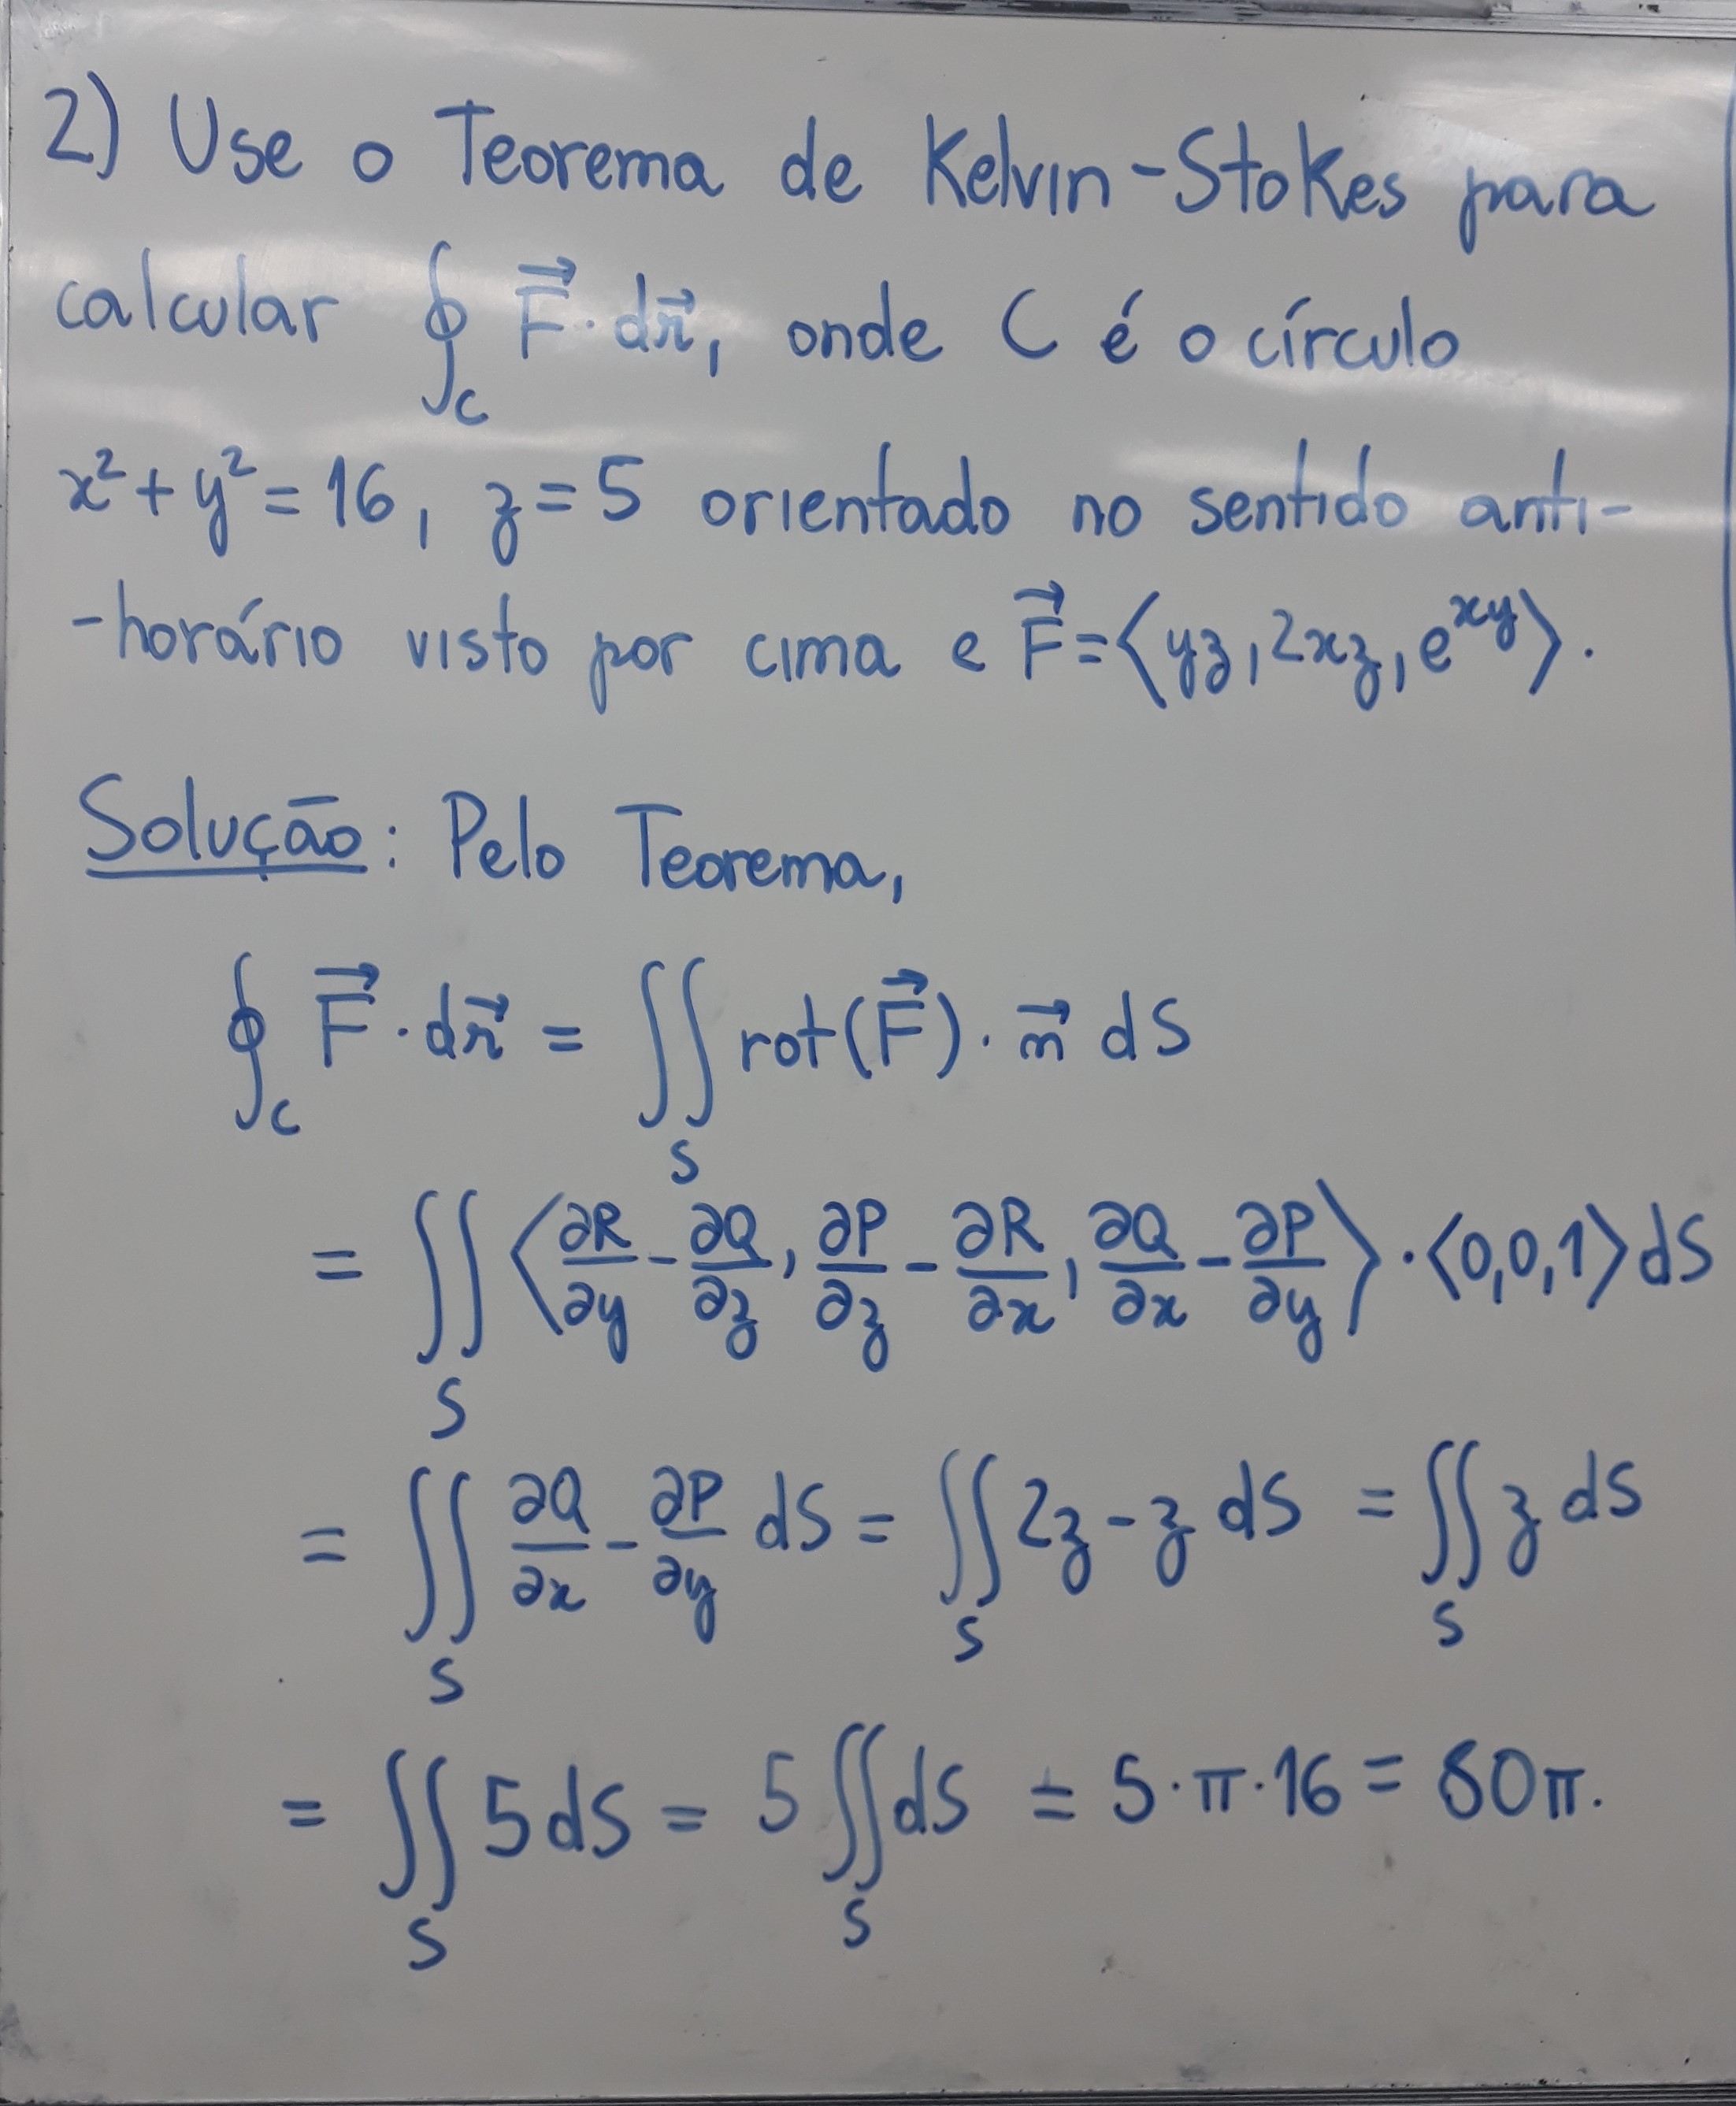 2) Use o Teorema de Kelvin-Stokes para
calcular ∮_C F⃗·dr⃗, onde C é o círculo
x²+y²=16, z=5 orientado no sentido anti-
-horário visto por cima e F⃗=⟨yz,2xz,e^{xy}⟩.
Solução: Pelo Teorema,
∮_C F⃗·dr⃗ = ∬_S rot(F⃗)·n⃗ dS
= ∬_S ⟨∂R/∂y - ∂Q/∂z, ∂P/∂z - ∂R/∂x, ∂Q/∂x - ∂P/∂y⟩·⟨0,0,1⟩dS
= ∬_S ∂Q/∂x - ∂P/∂y dS = ∬_S 2z-z dS = ∬_S z dS
= ∬_S 5dS = 5∬_S dS = 5·π·16 = 80π.